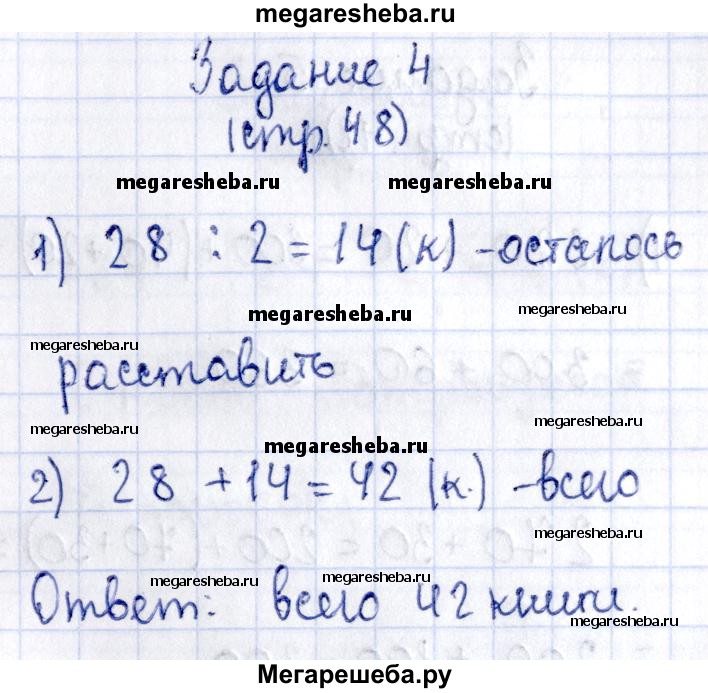 megaresheba.ru
Задание 4
(стр. 48)
megaresheba.ru megaresheba.ru
1) 28 : 2 = 14 (к) - осталось
megaresheba.ru megaresheba.ru
megaresheba.ru
расставить
megaresheba.ru megaresheba.ru
megaresheba.ru
2) 28 + 14 = 42 (к.) - всего
megaresheba.ru
megaresheba.ru megaresheba.ru
Ответ: всего 42 книги.
megaresheba.ru
Мегарешеба.ру